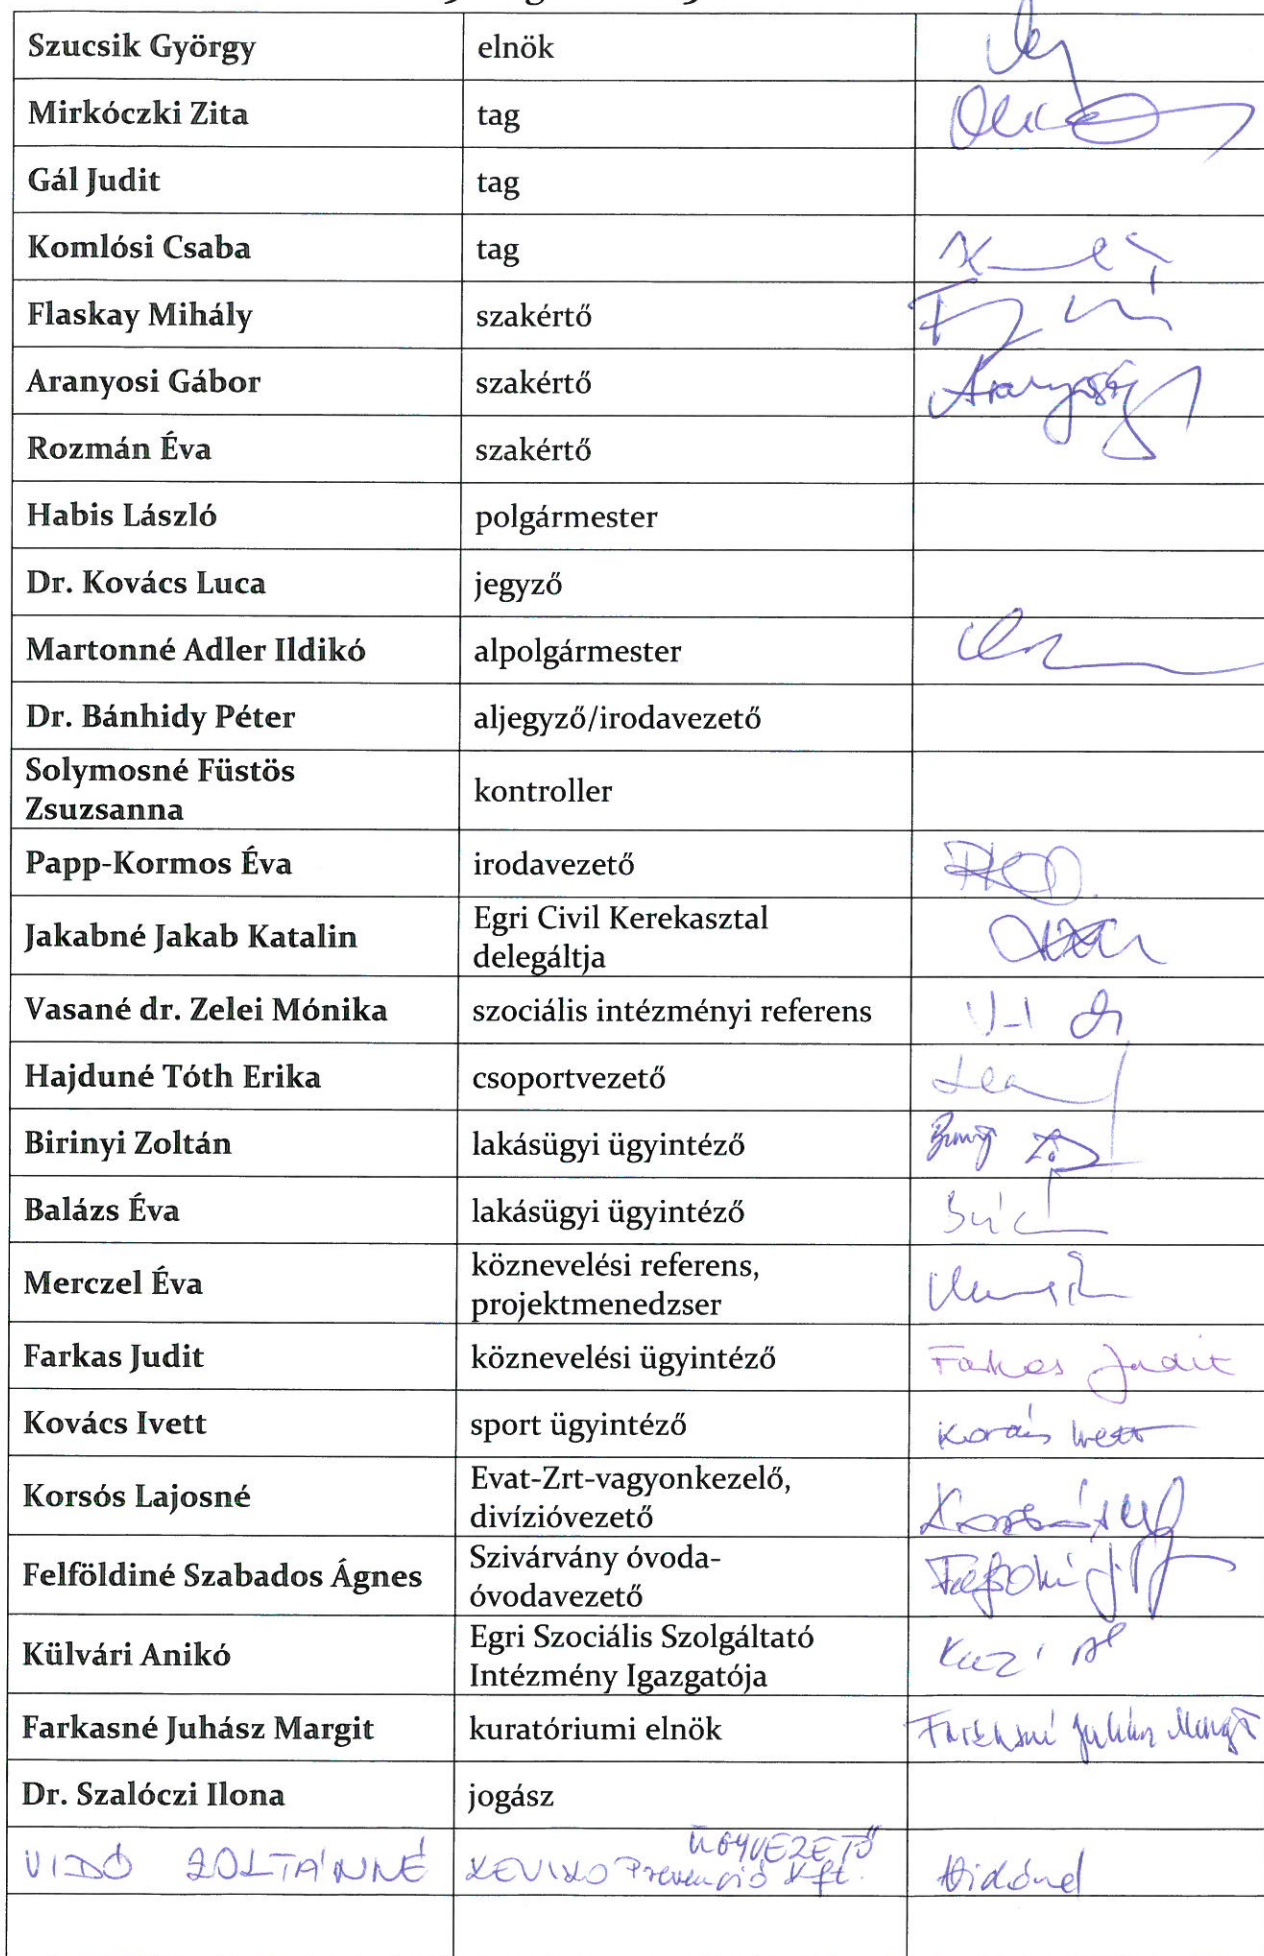 Szucsik György elnök
Mirkóczki Zita tag
Gál Judit tag
Komlósi Csaba tag
Flaskay Mihály szakértő
Aranyosi Gábor szakértő Aranyosi
Rozmán Éva szakértő
Habis László polgármester
Dr. Kovács Luca jegyző
Martonné Adler Ildikó alpolgármester
Dr. Bánhidy Péter aljegyző/irodavezető
Solymosné Füstös
Zsuzsanna
kontroller
Papp-Kormos Éva irodavezető
Jakabné Jakab Katalin
Egri Civil Kerekasztal
delegáltja
Vasané dr. Zelei Mónika szociális intézményi referens
Hajduné Tóth Erika csoportvezető
Birinyi Zoltán lakásügyi ügyintéző
Balázs Éva lakásügyi ügyintéző
Merczel Éva
köznevelési referens,
projektmenedzser
Farkas Judit köznevelési ügyintéző Farkas Judit
Kovács Ivett sport ügyintéző Kovács Ivett
Korsós Lajosné
Evat-Zrt-vagyonkezelő,
divízióvezető
Felföldiné Szabados Ágnes
Szivárvány óvoda-
óvodavezető
Külvári Anikó
Egri Szociális Szolgáltató
Intézmény Igazgatója
Farkasné Juhász Margit kuratóriumi elnök Farkasné Juhász Margit
Dr. Szalóczi Ilona jogász
ÜGYVEZETŐ
VIDÓ ZOLTÁNNÉ KEVIXO Prevenció Kft. Vidóné